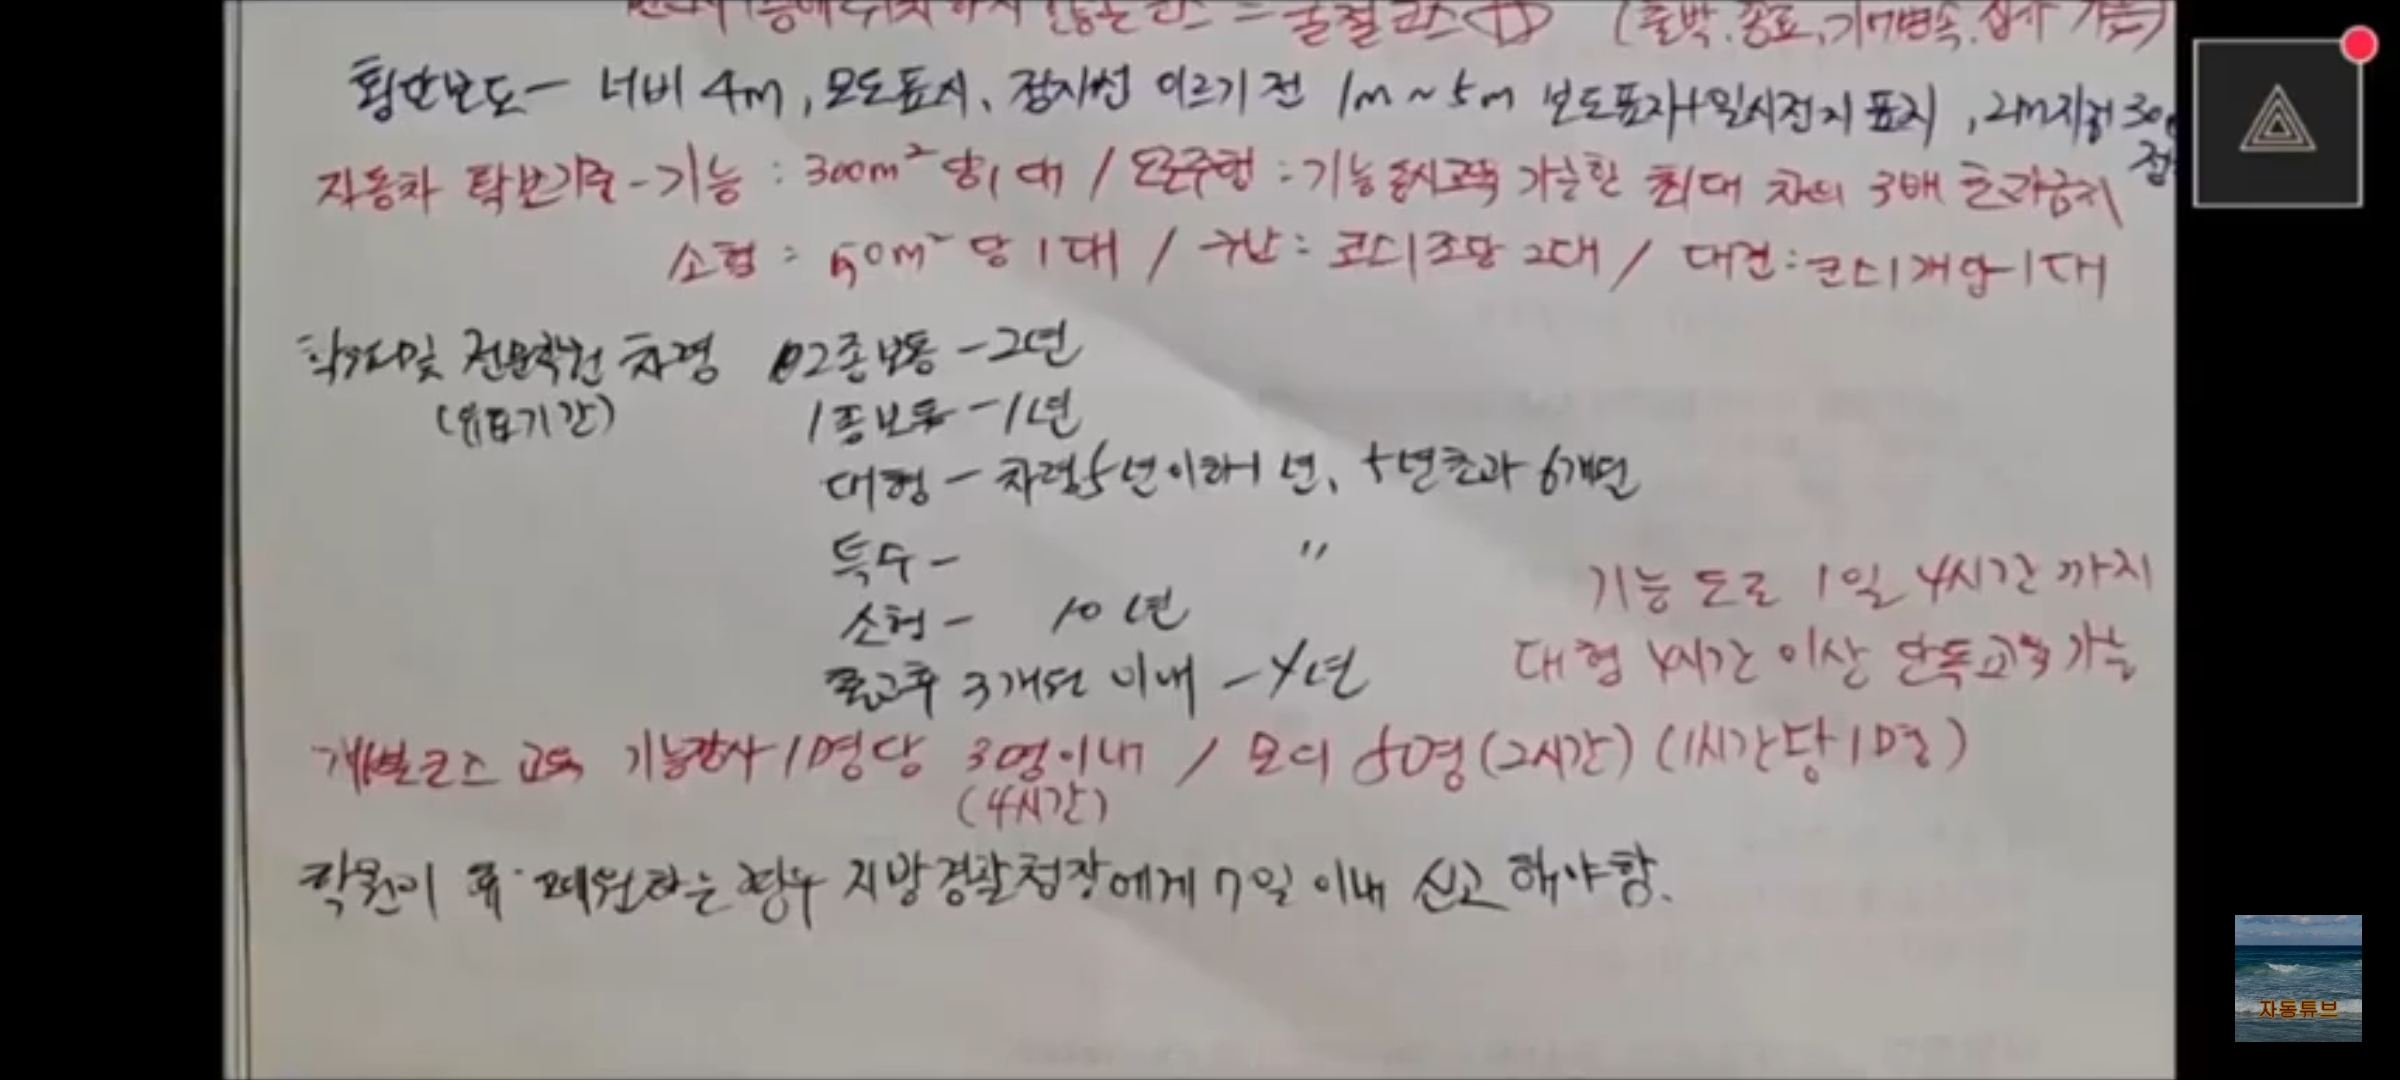 않는 코스 = 굴절코스 (출발.종료.기어변속.
횡단보도 - 너비 4m, 모도표시, 정지선 이르기 전 1m ~ 5m 보도표지+일시정지 표지, 2m지점 30
자동차 확보기준 - 기능 : 300m² 당 1대 / 도로주행 : 기능 동시교육 가능한 최대 차의 3배 초과금지
소형 : 50m² 당 1대 / 구난 : 코스 1조당 2대 / 대견 : 코스 1개당 1대
학원 및 전문학원 차령 2종보통 - 2년
(유효기간) 1종보통 - 1년
대형 - 차령 5년이하 1년, 5년초과 6개월
특수 - 〃
소형 - 10년
기능 도로 1일 4시간 까지
출고후 3개월 이내 - 4년
대형 4시간 이상 단독교육 가능
개별코스 교육 기능강사 1명당 3명이내 / 모의 50명 (2시간) (1시간당 1명)
(4시간)
학원이 휴·폐원하는 경우 지방경찰청장에게 7일 이내 신고 해야함.
자동튜브